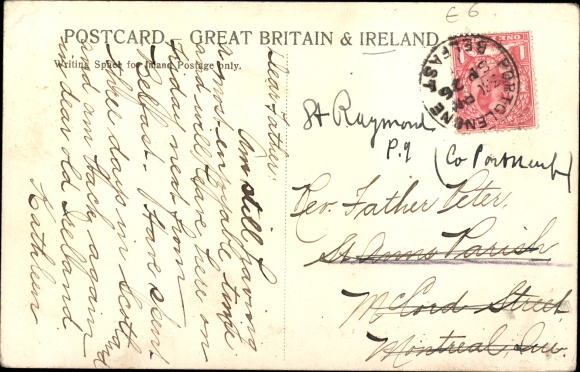 E6.
POSTCARD — GREAT BRITAIN & IRELAND
Writing Space for Inland Postage only.
Dear Father:
Am still having
a most enjoyable time
and will leave here on
Friday next from
Belfast. Have spent
three days in Scotland
and am back again
in dear old Ireland
Kathleen
PORTGLENONE
BELFAST
26
St Raymond
P.Q
(Co Portneuf)
Rev. Father Peter.
St Anns Parish
McCord Street
Montreal, Que.